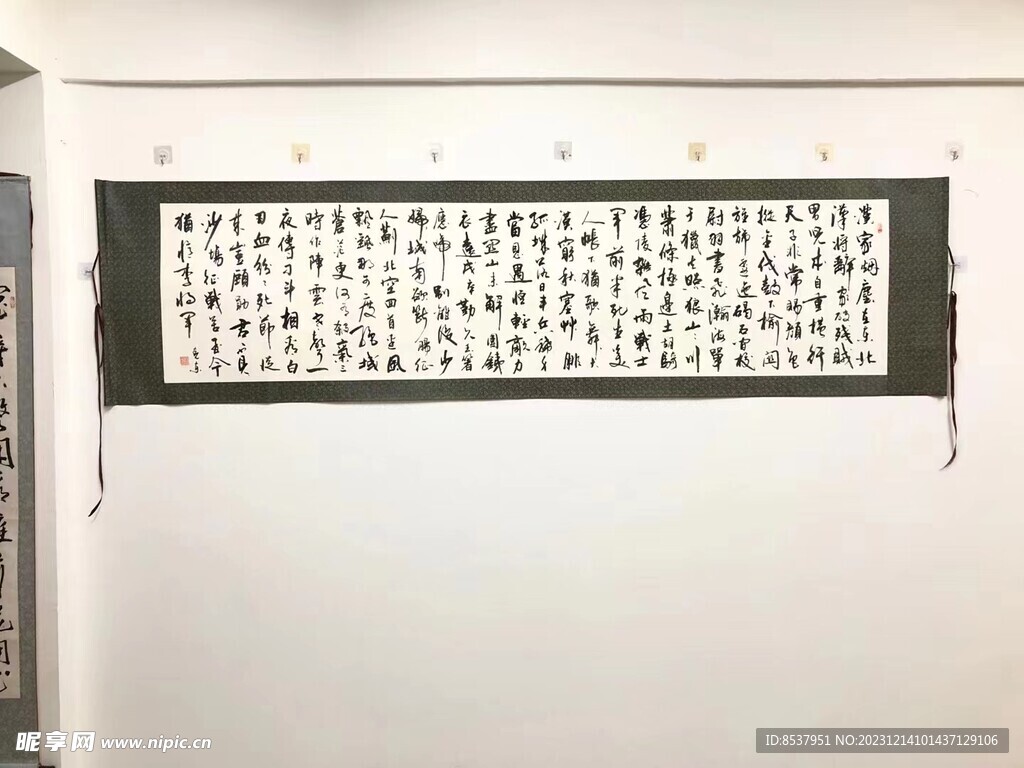 漢家烟塵在東北
漢將辭家破殘賊
男兒本自重橫行
天子非常賜顏色
摐金伐鼓下榆關
旌旆逶迤碣石間校
尉羽書飛瀚海單
于獵火照狼山山川
蕭條極邊土胡騎
憑陵雜風雨戰士
軍前半死生美
人帳下猶歌舞大
漠窮秋塞艸腓
孤城落日鬥兵稀身
當恩遇恒輕敵力
盡關山未解圍鐵
衣遠戍辛勤久玉箸
應啼別離後少
婦城南欲斷腸征
人薊北空回首邊風
飄颻那可度絕域
蒼茫更何有殺氣三
時作陣雲寒聲一
夜傳刁斗相看白
刃血紛紛死節從
來豈顧勛君不見
沙場征戰苦至今
猶憶李將軍
昵享网 www.nipic.cn
ID:8537951 NO:20231214101437129106